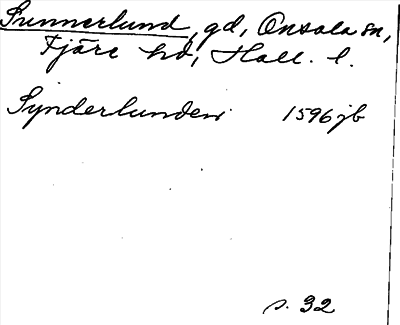 Sunnerlund, gd, Onsala sn,
Fjäre hd, Hall. l.
Synderlunden 1596 jb
s. 32